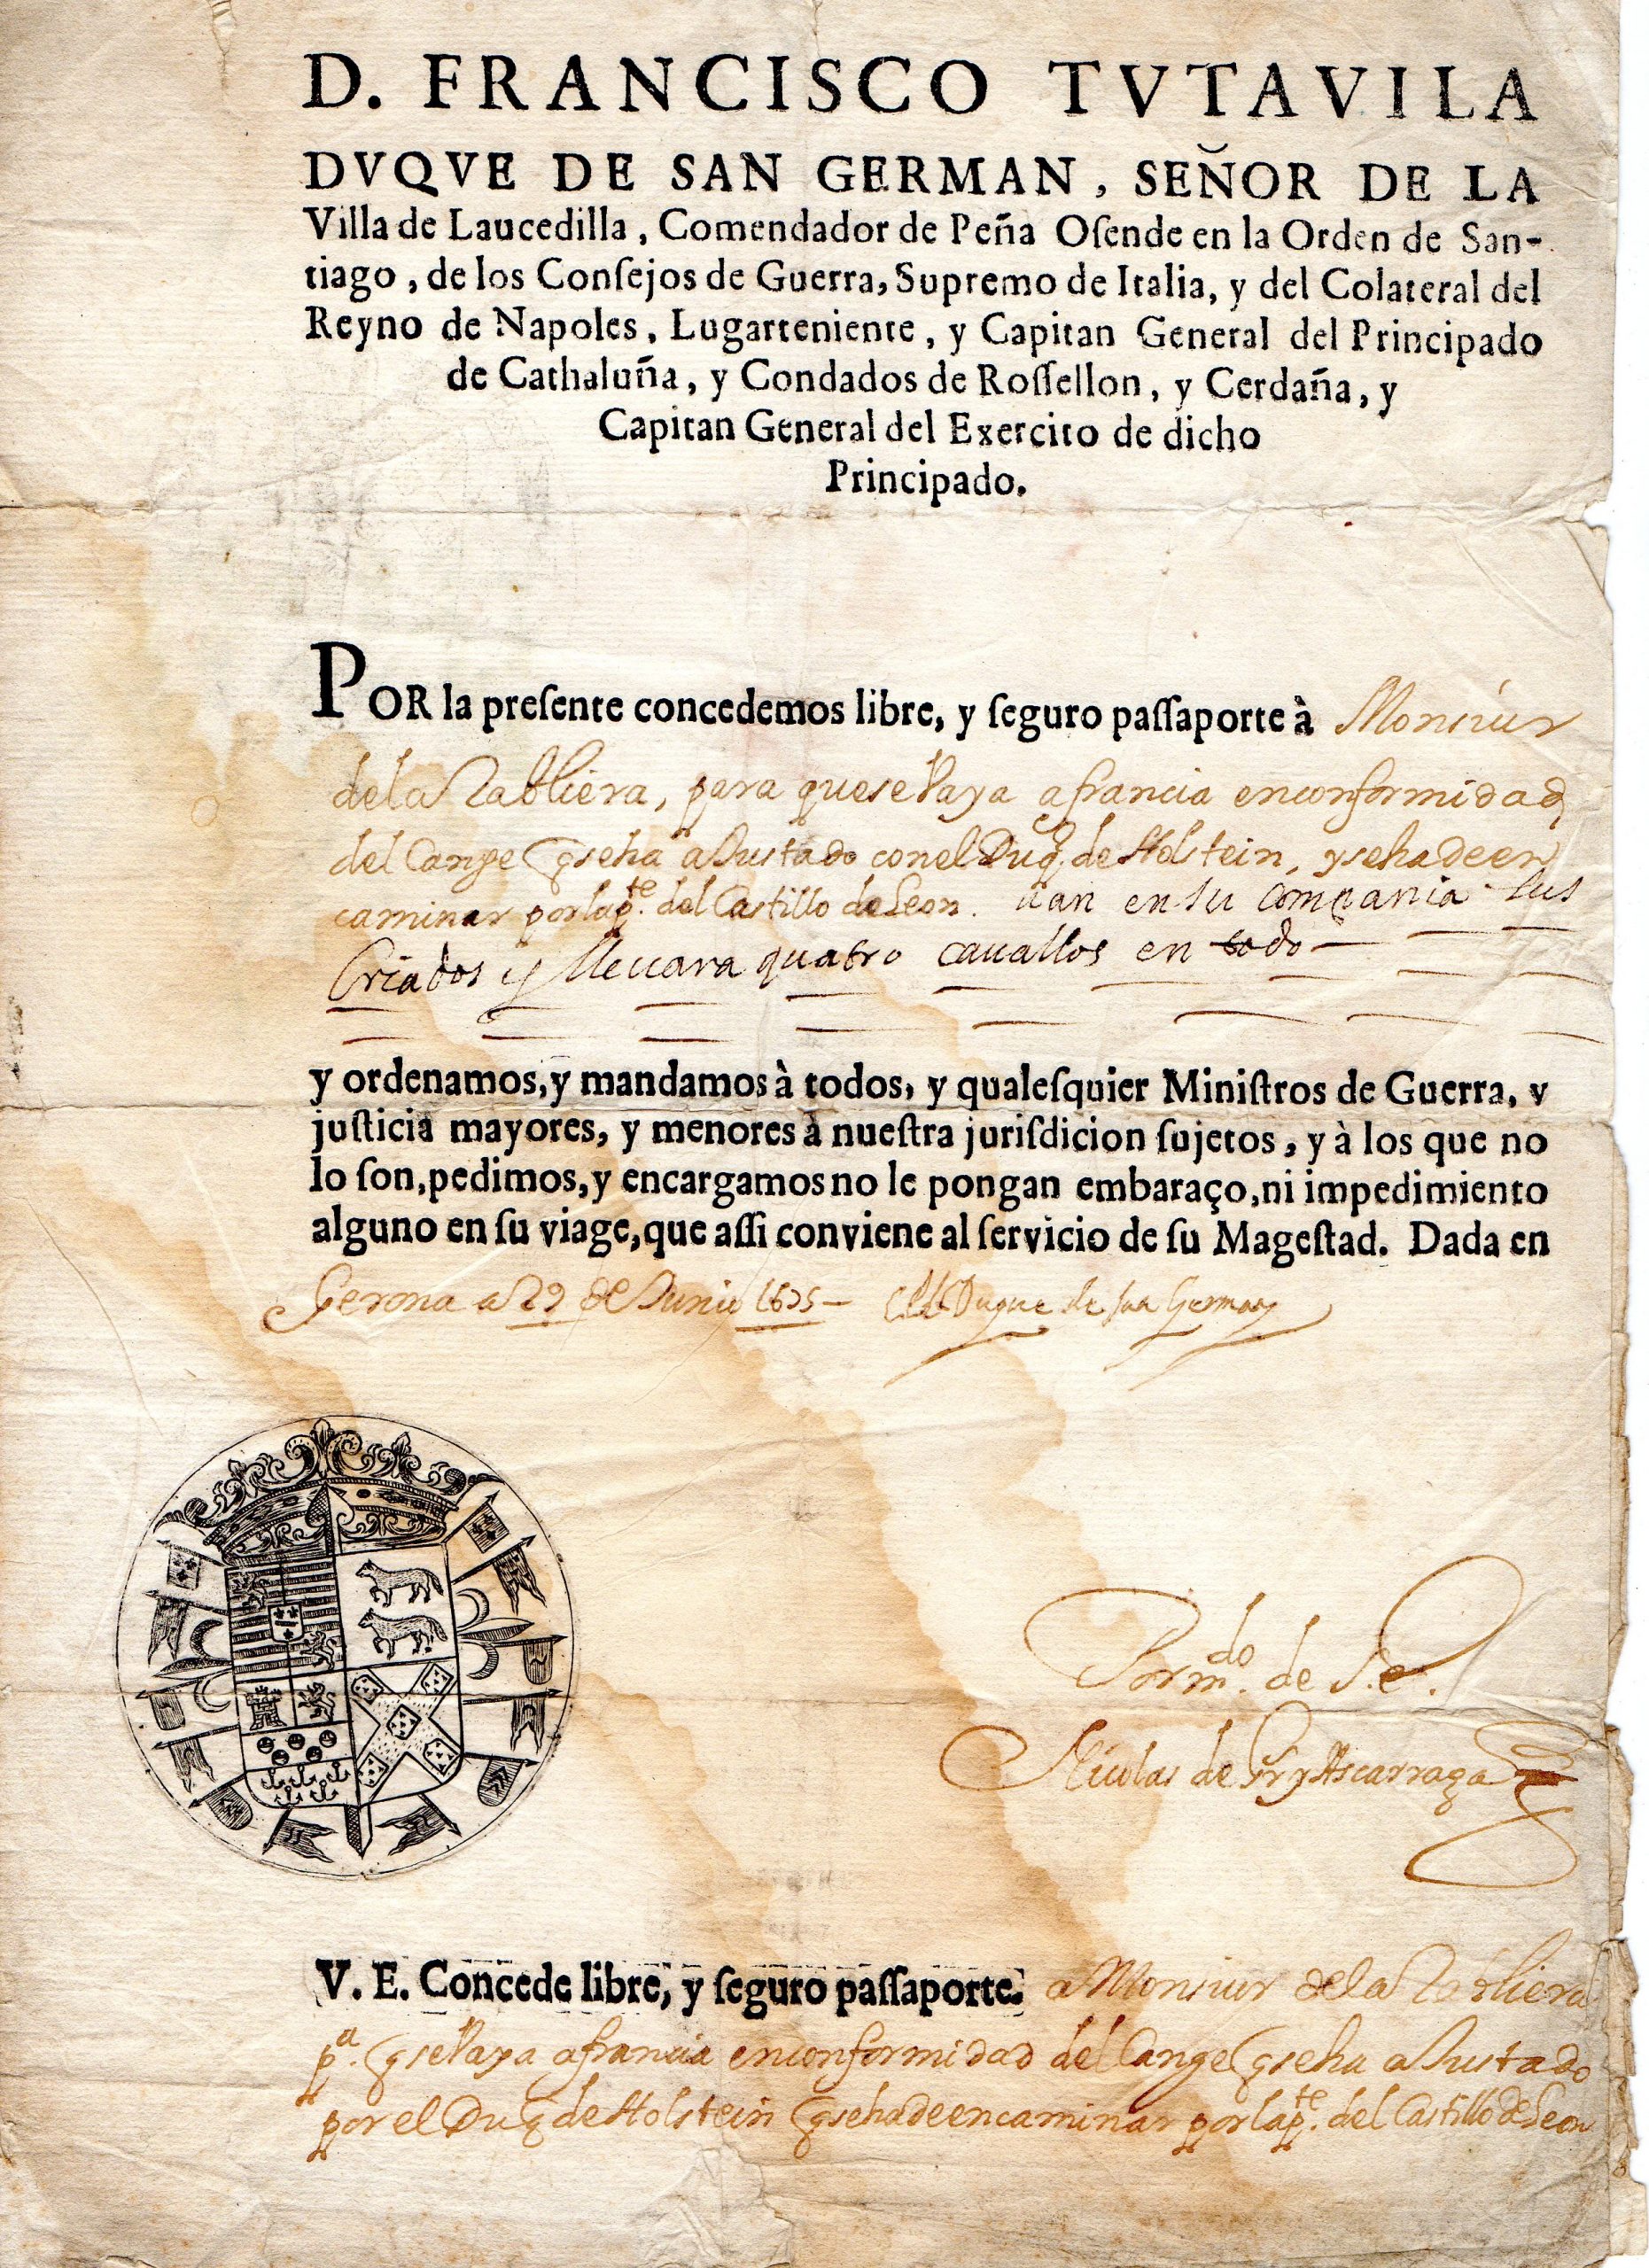 D. FRANCISCO TVTAVILA
DVQVE DE SAN GERMAN, SEÑOR DE LA
Villa de Laucedilla, Comendador de Peña Oſende en la Orden de San-
tiago, de los Conſejos de Guerra, Supremo de Italia, y del Colateral del
Reyno de Napoles, Lugarteniente, y Capitan General del Principado
de Cathaluña, y Condados de Roſſellon, y Cerdaña, y
Capitan General del Exercito de dicho
Principado.
POR la preſente concedemos libre, y ſeguro paſſaporte à Monsiur
de la Tabliera, para que se Vaya a francia en conformidad
del Cange q se ha aJustado con el Duq. de Holstein, y se ha de en
caminar por la p.te del Castillo de Leon. uan en su compania sus
Criados y lleuara quatro cauallos en todo
y ordenamos, y mandamos à todos, y qualeſquier Miniſtros de Guerra, y
juſticia mayores, y menores à nueſtra juriſdicion ſujetos, y à los que no
lo ſon, pedimos, y encargamos no le pongan embaraço, ni impedimiento
alguno en ſu viage, que aſſi conviene al ſervicio de ſu Mageſtad. Dada en
Gerona a 29 de Junio 1675 – El Duque de san German
Por m.do de S.e.
Nicolas de y Ascarraga
V. E. Concede libre, y ſeguro paſſaporte. a Monsiur de la Tabliera
p.a q se Vaya a francia en conformidad del Cange q se ha aJustado
por el Duq de Holstein q se ha de encaminar por la p.te del Castillo de Leon